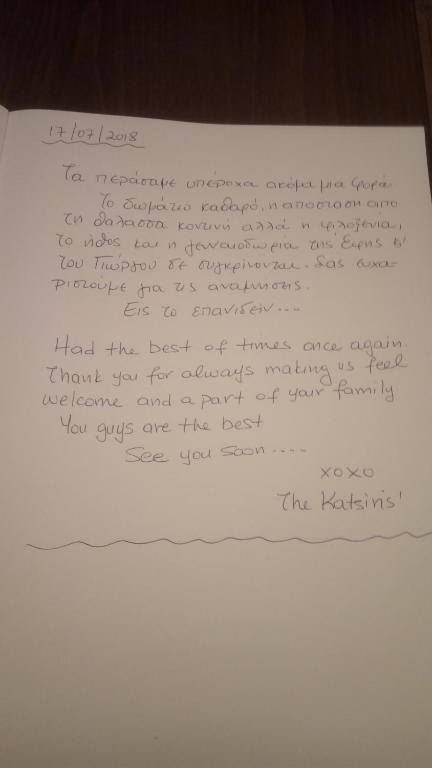 17/07/2018
Τα περάσαμε υπέροχα ακόμα μια φορά.
Το δωμάτιο καθαρό, η απόσταση από
τη θάλασσα κοντινή αλλά η φιλοξενία,
το ήθος και η γενναιοδωρία της Ειρης &
του Γιώργου δε συγκρίνονται. Σας ευχα-
ριστούμε για τις αναμνησεις.
Εις το επανιδείν....
Had the best of times once again.
Thank you for always making us feel
welcome and a part of your family
You guys are the best
See you soon ....
xoxo
The Katsiris'